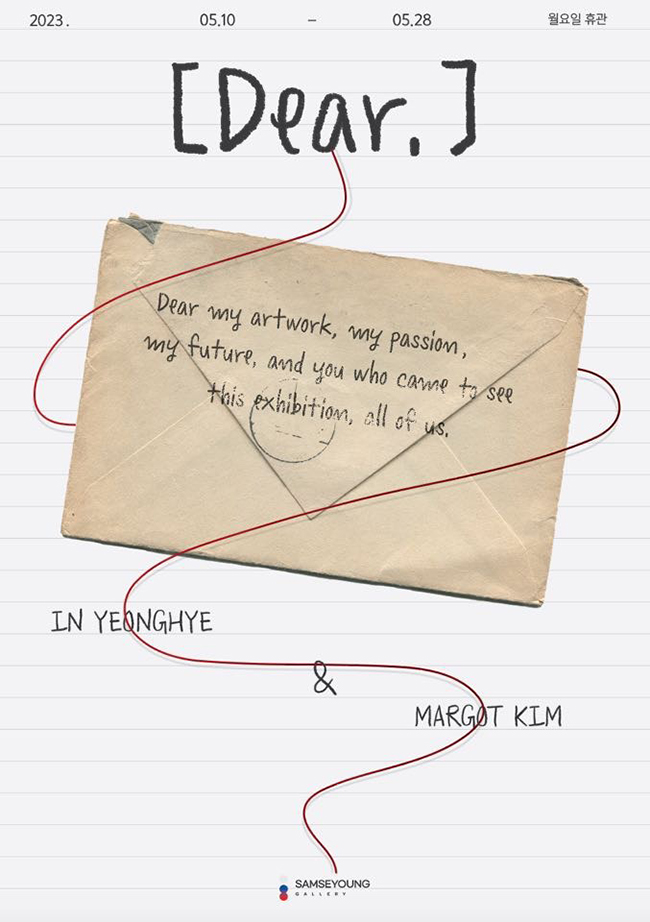 2023. 05.10 – 05.28 월요일 휴관
[Dear.]
Dear my artwork, my passion,
my future, and you who came to see
this exhibition, all of us.
IN YEONGHYE
&
MARGOT KIM
SAMSEYOUNG
GALLERY